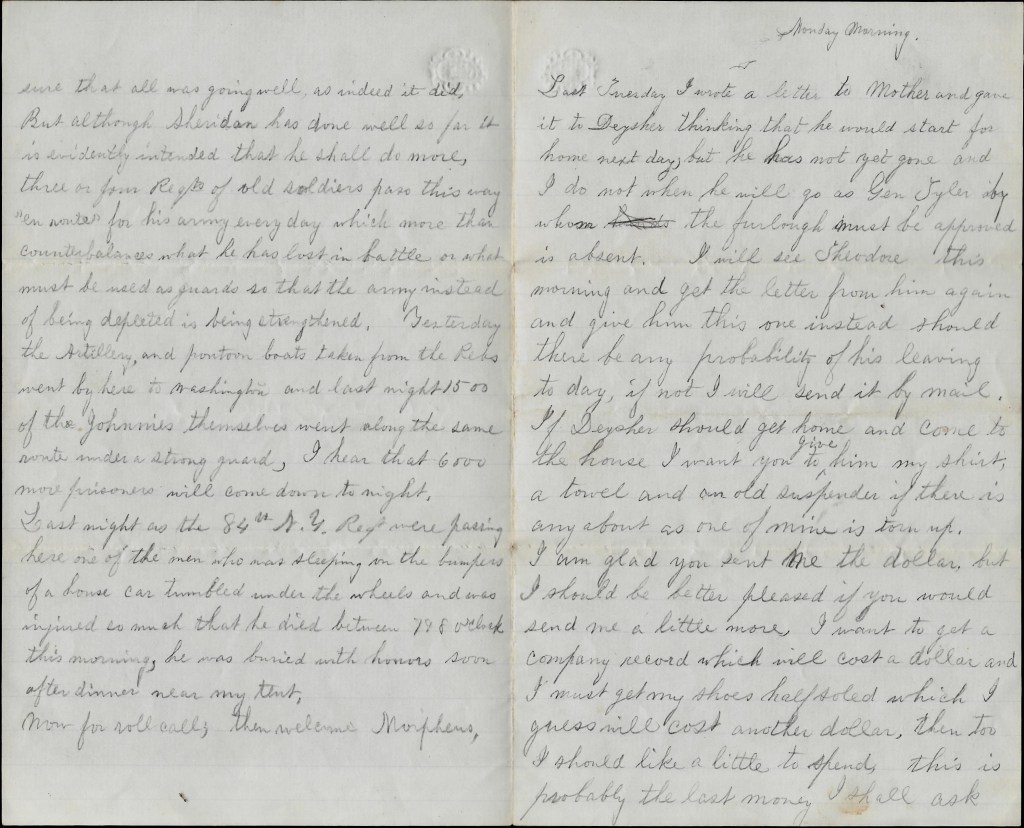 sure that all was going well, as indeed it did.
But although Sheridan has done well so far it
is evidently intended that he shall do more,
three or four Regts of old soldiers pass this way
"en route" for his army every day which more than
counterbalances what he has lost in battle or what
must be used as guards so that the army instead
of being depleted is being strengthened. Yesterday
the Artillery, and pontoon boats taken from the Rebs
went by here to Washington and last night 1500
of the Johnnies themselves went along the same
route under a strong guard, I hear that 6000
more prisoners will come down to night.
Last night as the 84th N.Y. Regt were passing
here one of the men who was sleeping on the bumpers
of a house car tumbled under the wheels and was
injured so much that he died between 7 & 8 o'clock
this morning, he was buried with honors soon
after dinner near my tent,
Now for roll call; then welcome Morpheus,
Monday Morning.
Last Tuesday I wrote a letter to Mother and gave
it to Deysher thinking that he would start for
home next day, but he has not yet gone and
I do not when he will go as Gen Tyler by
whom the furlough must be approved
is absent. I will see Theodore this
morning and get the letter from him again
and give him this one instead should
there be any probability of his leaving
to day, if not I will send it by mail.
If Deysher should get home and come to
the house I want you to give him my shirt,
a towel and an old suspender if there is
any about as one of mine is torn up.
I am glad you sent me the dollar, but
I should be better pleased if you would
send me a little more, I want to get a
company record which will cost a dollar and
I must get my shoes half soled which I
guess will cost another dollar, then too
I should like a little to spend, this is
probably the last money I shall ask